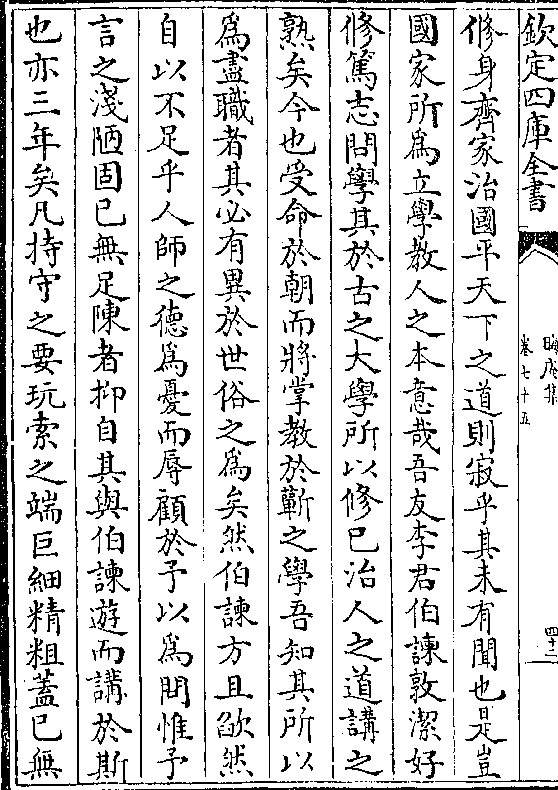 欽定四庫全書
晦庵集
卷七十五
四十二
修身齊家治國平天下之道則寂乎其未有聞也是豈
國家所為立學教人之本意哉吾友李君伯諫敦潔好
修篤志問學其於古之大學所以修己治人之道講之
熟矣今也受命於朝而將掌教於蘄之學吾知其所以
為盡職者其必有異於世俗之為矣然伯諫方且欿然
自以不足乎人師之德為憂而辱顧於予以為問惟予
言之淺陋固已無足陳者抑自其與伯諫遊而講於斯
也亦三年矣凡持守之要玩索之端巨細精粗蓋已無